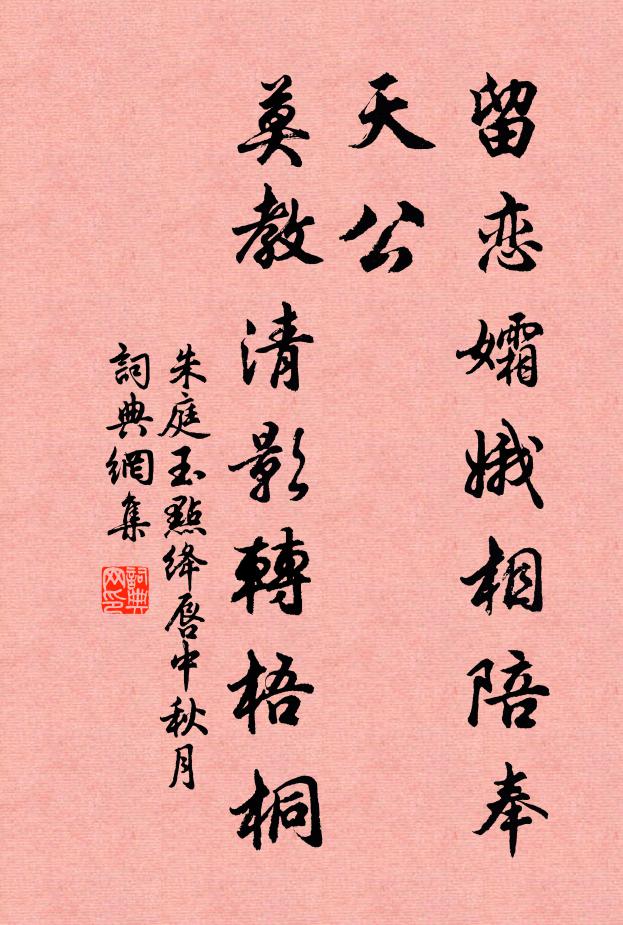 留恋孀娥相陪奉
天公
莫教清影轉梧桐
朱庭玉點绛唇中秋月
詞典網集
詞典网印